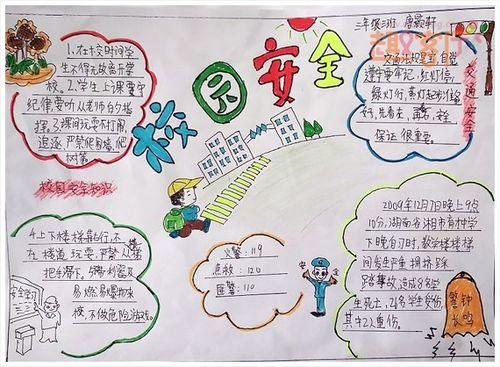 三年级二班 唐毅轩
校园安全
1、在校时间学
生不得无故离开学
校。2、学生上课要守
纪律,要听从老师的指
挥。3、课间玩耍不打闹、
追逐,严禁爬围墙、爬
树等。
校园安全知识
交通法规是宝,自觉
遵守要牢记,红灯停,
绿灯行,黄灯
好,先看左,再看右,安全
保证很重要。
交通安全
4、上下楼梯靠右行,不
在楼道玩耍,严禁从楼
把手滑下,
易燃易爆物来
校,不做危险游戏。
安全学习
火警:119
急救:120
匪警:110
2009年12月7日晚上9点
10分,湖南省湘乡市育才中学
下晚自习时,教学楼楼梯
间发生严重拥挤踩
踏事故,造成8名学
生死亡,26名学生受伤,
其中2人重伤。
警钟
长鸣